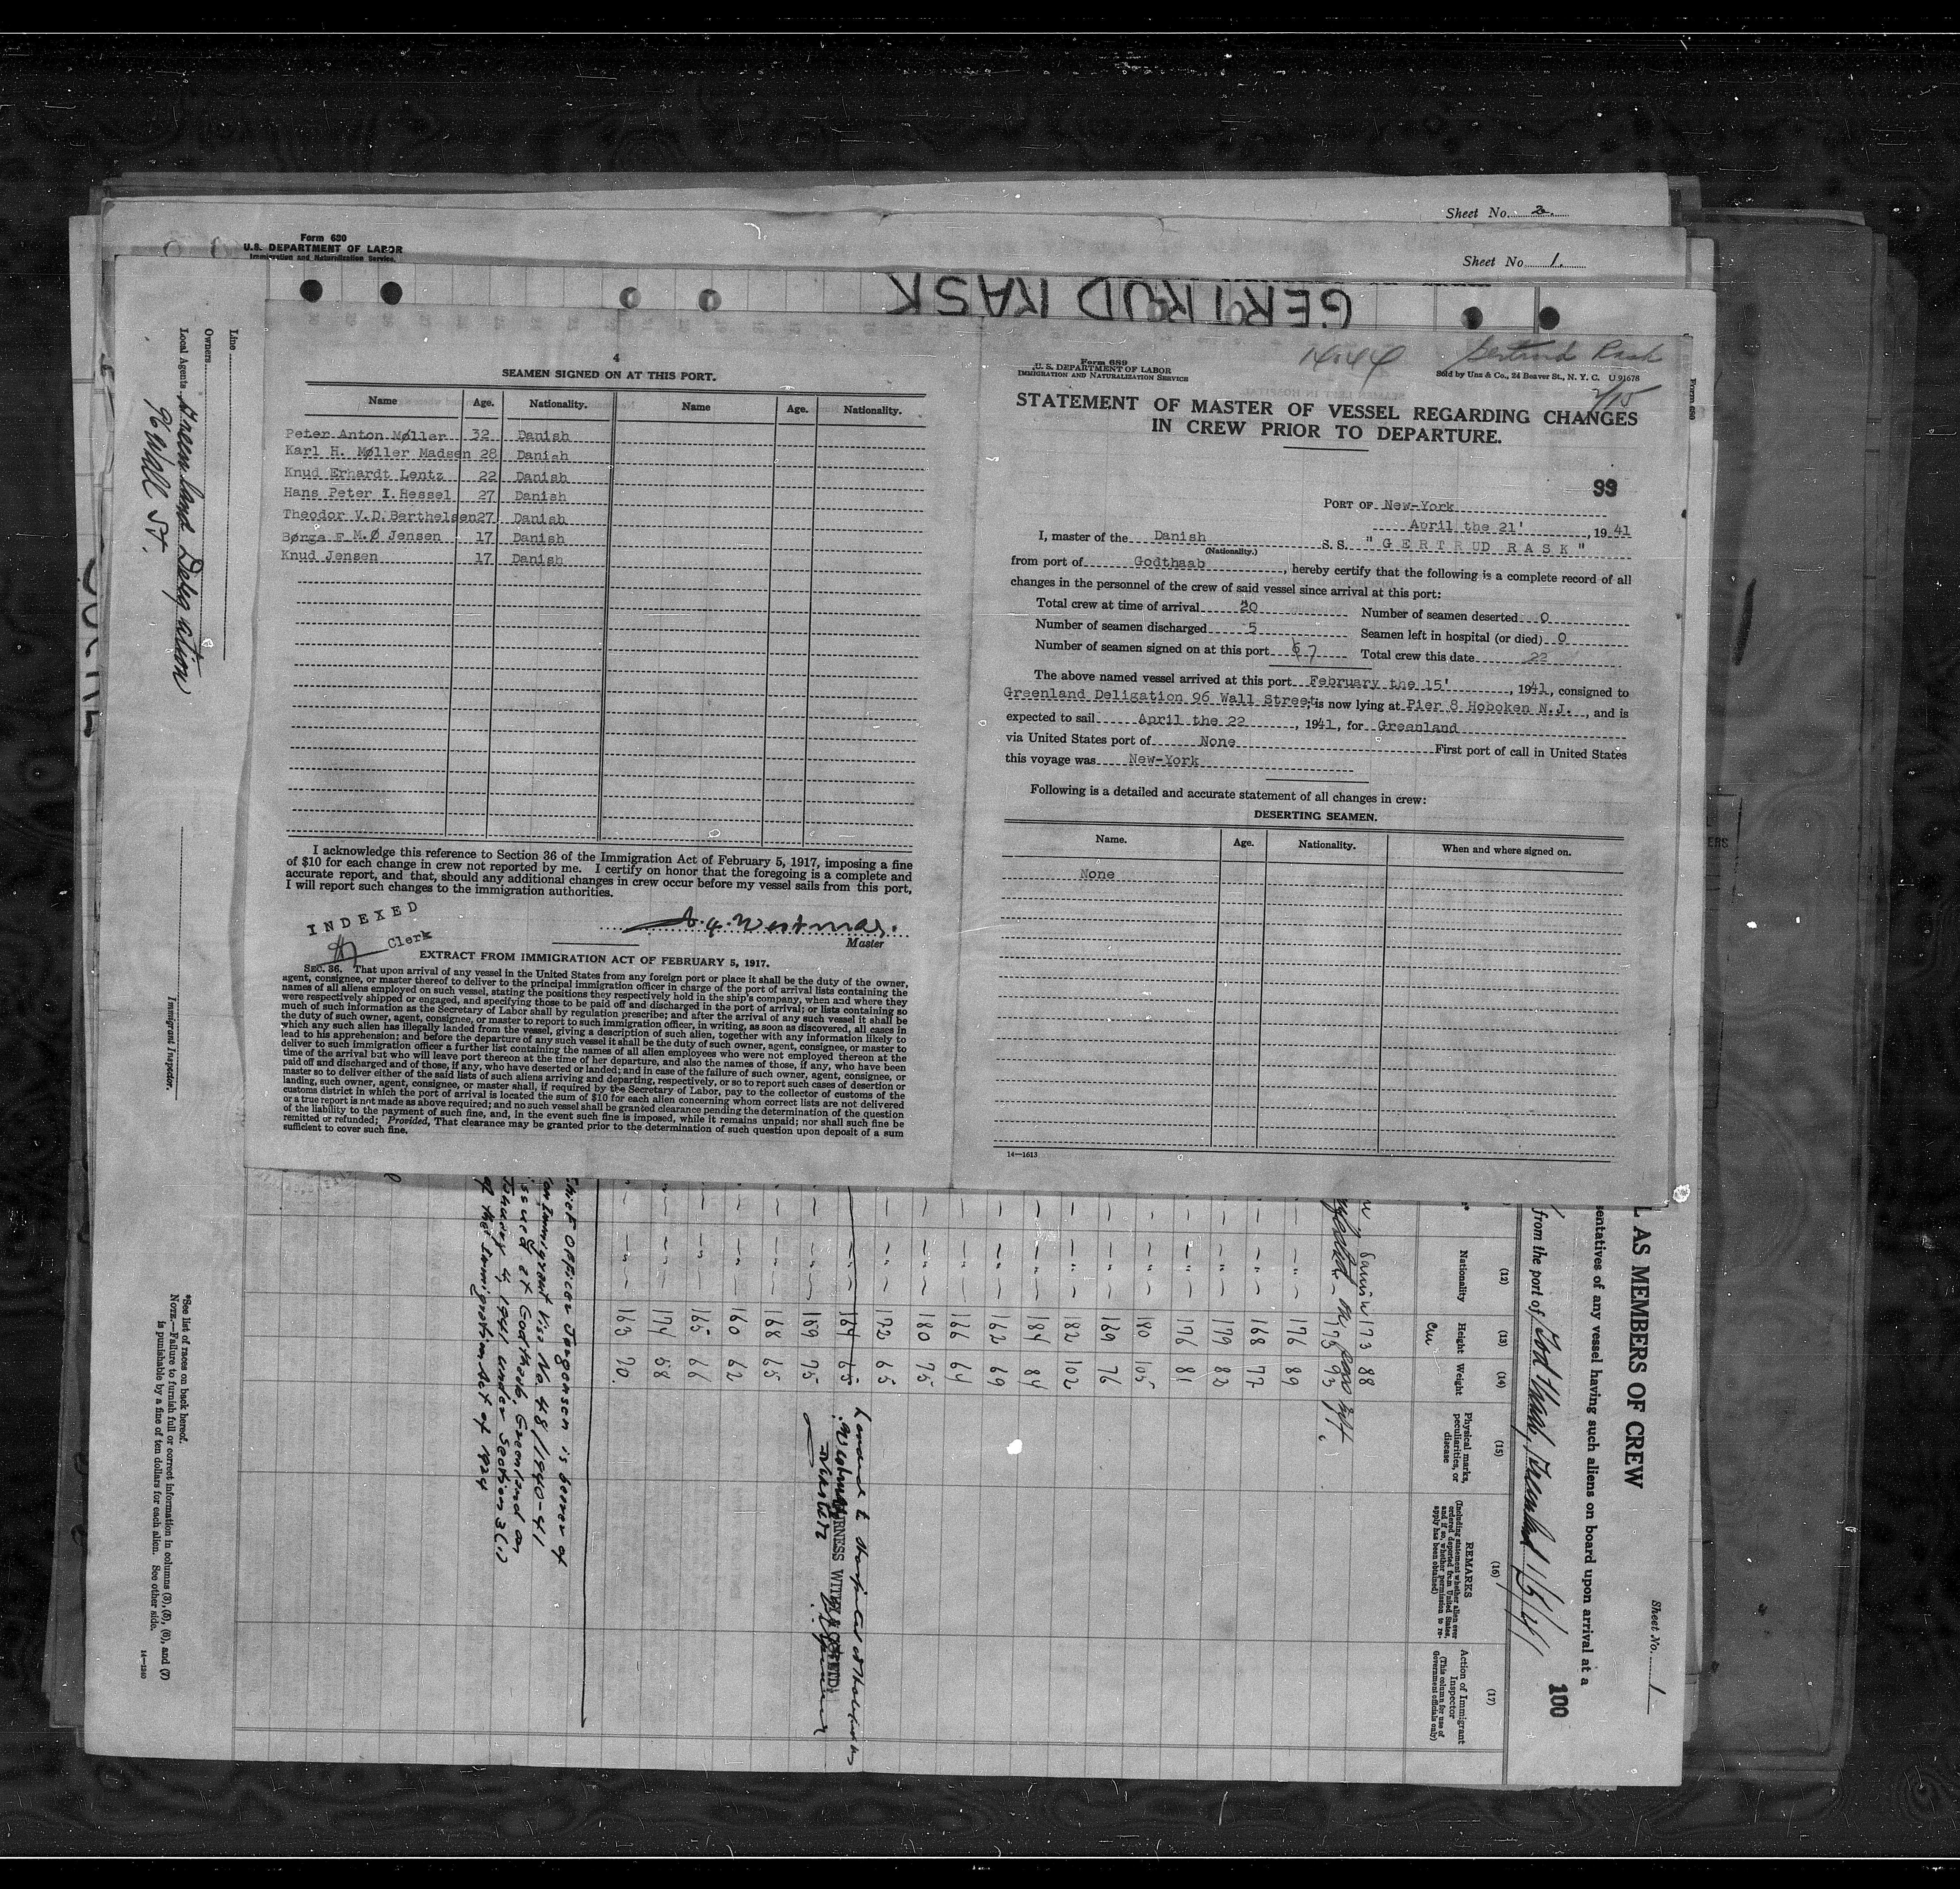 Sheet No. 2.
Form 680
U.S. DEPARTMENT OF LABOR
Immigration and Naturalization Service.
Sheet No 1.
GERTRUD RASK
4
SEAMEN SIGNED ON AT THIS PORT.
Name Age. Nationality. Name Age. Nationality.
Peter Anton Møller 32 Danish
Karl H. Møller Madsen 28 Danish
Knud Erhardt Lentz 22 Danish
Hans Peter I. Hessel 27 Danish
Theodor V.D. Berthelsen 27 Danish
Børge F M.Ø Jensen 17 Danish
Knud Jensen 17 Danish
I acknowledge this reference to Section 36 of the Immigration Act of February 5, 1917, imposing a fine
of $10 for each change in crew not reported by me. I certify on honor that the foregoing is a complete and
accurate report, and that, should any additional changes in crew occur before my vessel sails from this port,
I will report such changes to the immigration authorities.
INDEXED
Clerk
Master
EXTRACT FROM IMMIGRATION ACT OF FEBRUARY 5, 1917.
SEC. 36. That upon arrival of any vessel in the United States from any foreign port or place it shall be the duty of the owner,
agent, consignee, or master thereof to deliver to the principal immigration officer in charge of the port of arrival lists containing the
names of all aliens employed on such vessel, stating the positions they respectively hold in the ship's company, when and where they
were respectively shipped or engaged, and specifying those to be paid off and discharged in the port of arrival; or lists containing so
much of such information as the Secretary of Labor shall by regulation prescribe; and after the arrival of any such vessel it shall be
the duty of such owner, agent, consignee, or master to report to such immigration officer, in writing, as soon as discovered, all cases in
which any such alien has illegally landed from the vessel, giving a description of such alien, together with any information likely to
lead to his apprehension; and before the departure of any such vessel it shall be the duty of such owner, agent, consignee, or master to
deliver to such immigration officer a further list containing the names of all alien employees who were not employed thereon at the
time of the arrival but who will leave port thereon at the time of her departure, and also the names of those, if any, who have been
paid off and discharged and of those, if any, who have deserted or landed; and in case of the failure of such owner, agent, consignee, or
master so to deliver either of the said lists of such aliens arriving and departing, respectively, or so to report such cases of desertion or
landing, such owner, agent, consignee, or master shall, if required by the Secretary of Labor, pay to the collector of customs of the
customs district in which the port of arrival is located the sum of $10 for each alien concerning whom correct lists are not delivered
or a true report is not made as above required; and no such vessel shall be granted clearance pending the determination of the question
of the liability to the payment of such fine, and, in the event such fine is imposed, while it remains unpaid; nor shall such fine be
remitted or refunded; Provided, That clearance may be granted prior to the determination of such question upon deposit of a sum
sufficient to cover such fine.
Form 689
U. S. DEPARTMENT OF LABOR
IMMIGRATION AND NATURALIZATION SERVICE
Gertrud Rask
Sold by Unz & Co., 24 Beaver St., N. Y. C. U 91678
2/15
STATEMENT OF MASTER OF VESSEL REGARDING CHANGES
IN CREW PRIOR TO DEPARTURE.
99
PORT OF New-York
April the 21' , 19 41
I, master of the Danish S.S. "GERTRUD RASK"
(Nationality.)
from port of Godthaab , hereby certify that the following is a complete record of all
changes in the personnel of the crew of said vessel since arrival at this port:
Total crew at time of arrival 20 Number of seamen deserted 0
Number of seamen discharged 5 Seamen left in hospital (or died) 0
Number of seamen signed on at this port 7 Total crew this date 22
The above named vessel arrived at this port February the 15' , 1941, consigned to
Greenland Deligation 96 Wall Street, is now lying at Pier 8 Hoboken N.J. , and is
expected to sail April the 22 , 1941, for Greenland
via United States port of None First port of call in United States
this voyage was New-York
Following is a detailed and accurate statement of all changes in crew:
DESERTING SEAMEN.
Name. Age. Nationality. When and where signed on.
None
14—1613
Line
Owners
Local Agents Greenland Delegation
96 Wall St.
Immigrant Inspector.
*See list of races on back hereof.
NOTE.—Failure to furnish full or correct information in columns (3), (5), (6), and (7)
is punishable by a fine of ten dollars for each alien. See other side.
14—1240
Form 680
Sheet No. 1
L AS MEMBERS OF CREW
sentatives of any vessel having such aliens on board upon arrival at a
from the port of Godthaab, Greenland
100
(12) (13) (14) (15) (16) (17)
Nationality
Height
cm
Weight
Physical marks, peculiarities, or disease
REMARKS
(Including statement whether alien ever ordered deported from United States, and if so, whether permission to reapply has been obtained)
Action of Immigrant Inspector
(This column for use of Government officials only)
Danish 173 88
173 93
176 89
168 77
179 82
176 81
180 105
169 76
182 102
184 84
162 69
166 64
180 75
172 65
164 65
169 75
168 65
160 62
165 66
174 58
163 70.
Chief Officer Jorgensen is bearer of
nonimmigrant Visa No. 48/1940-41
issued at Godthaab, Greenland on
January 4, 1941 under section 3(1)
of the Immigration Act of 1924